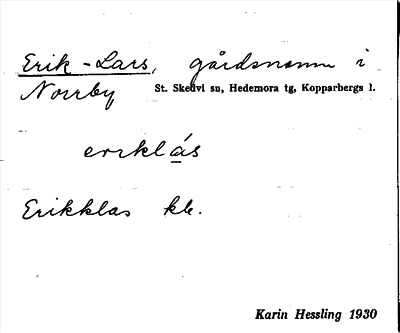 Erik-Lars, gårdsnamn i
Norrby St. Skedvi sn, Hedemora tg, Kopparbergs l.
erıklás
Erikklas kk.
Karin Hessling 1930